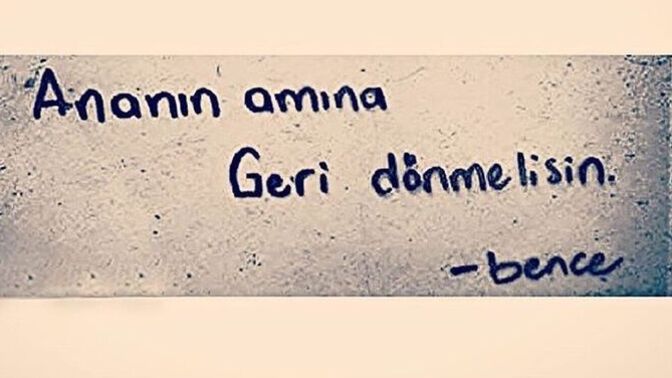 Ananın amına
Geri dönmelisin.
-bence